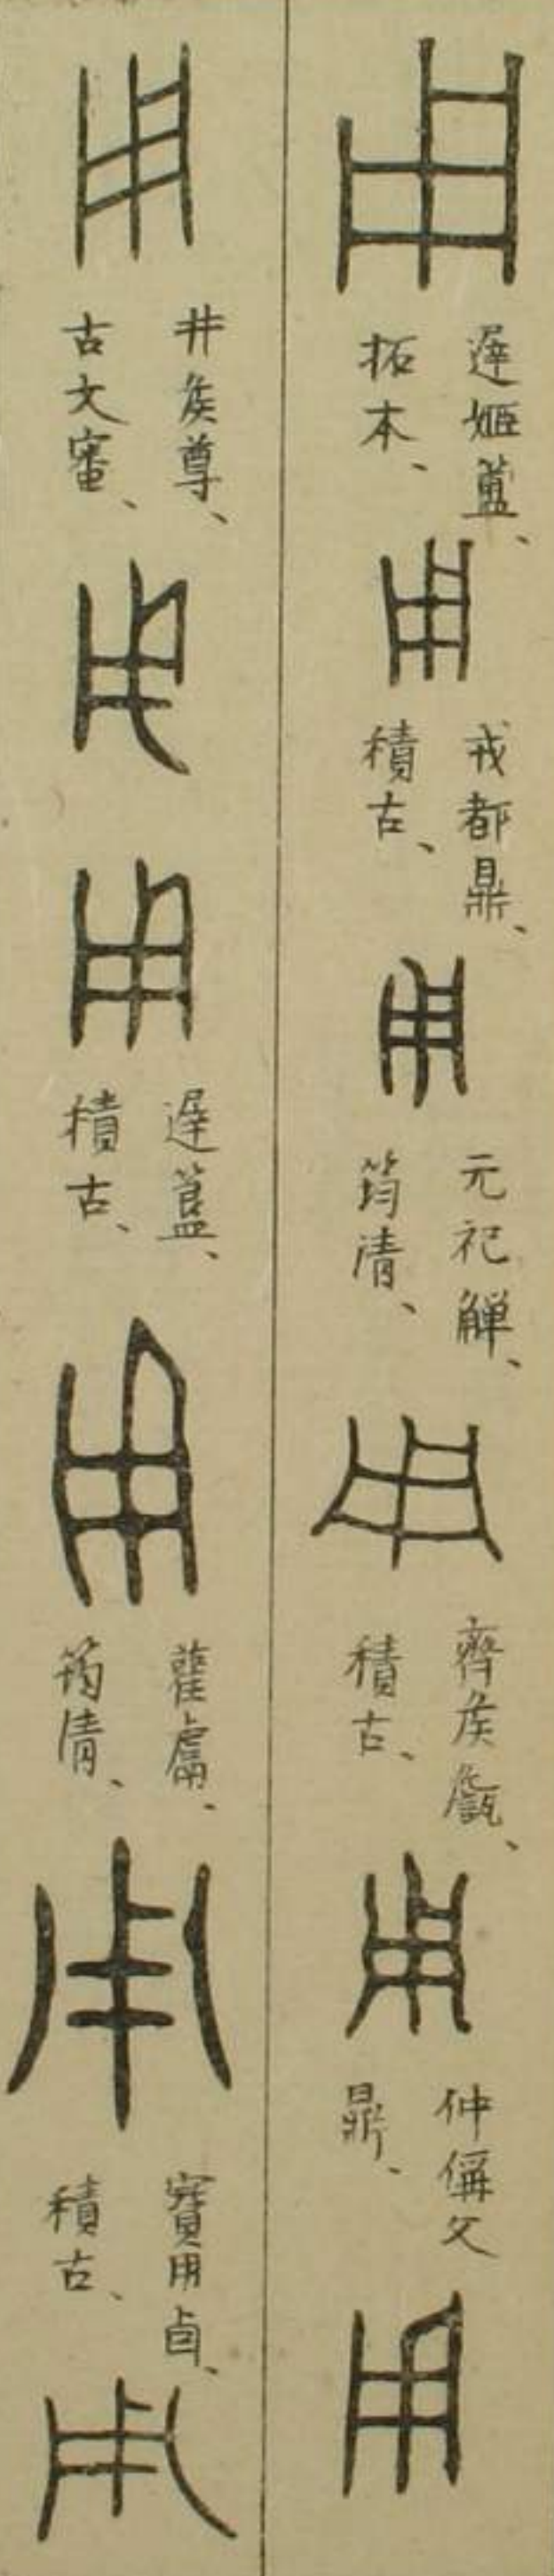 用
遟姬簋、
拓本、
用
戎都鼎、
積古、
用
元祀觶、
筠清、
用
齊矦甗、
積古、
用
仲偁父
鼎、
用
用
井矦尊、
古文審、
用
用
遟簋、
積古、
用
雚鬲、
筠清、
用
寶用卣、
積古、
用